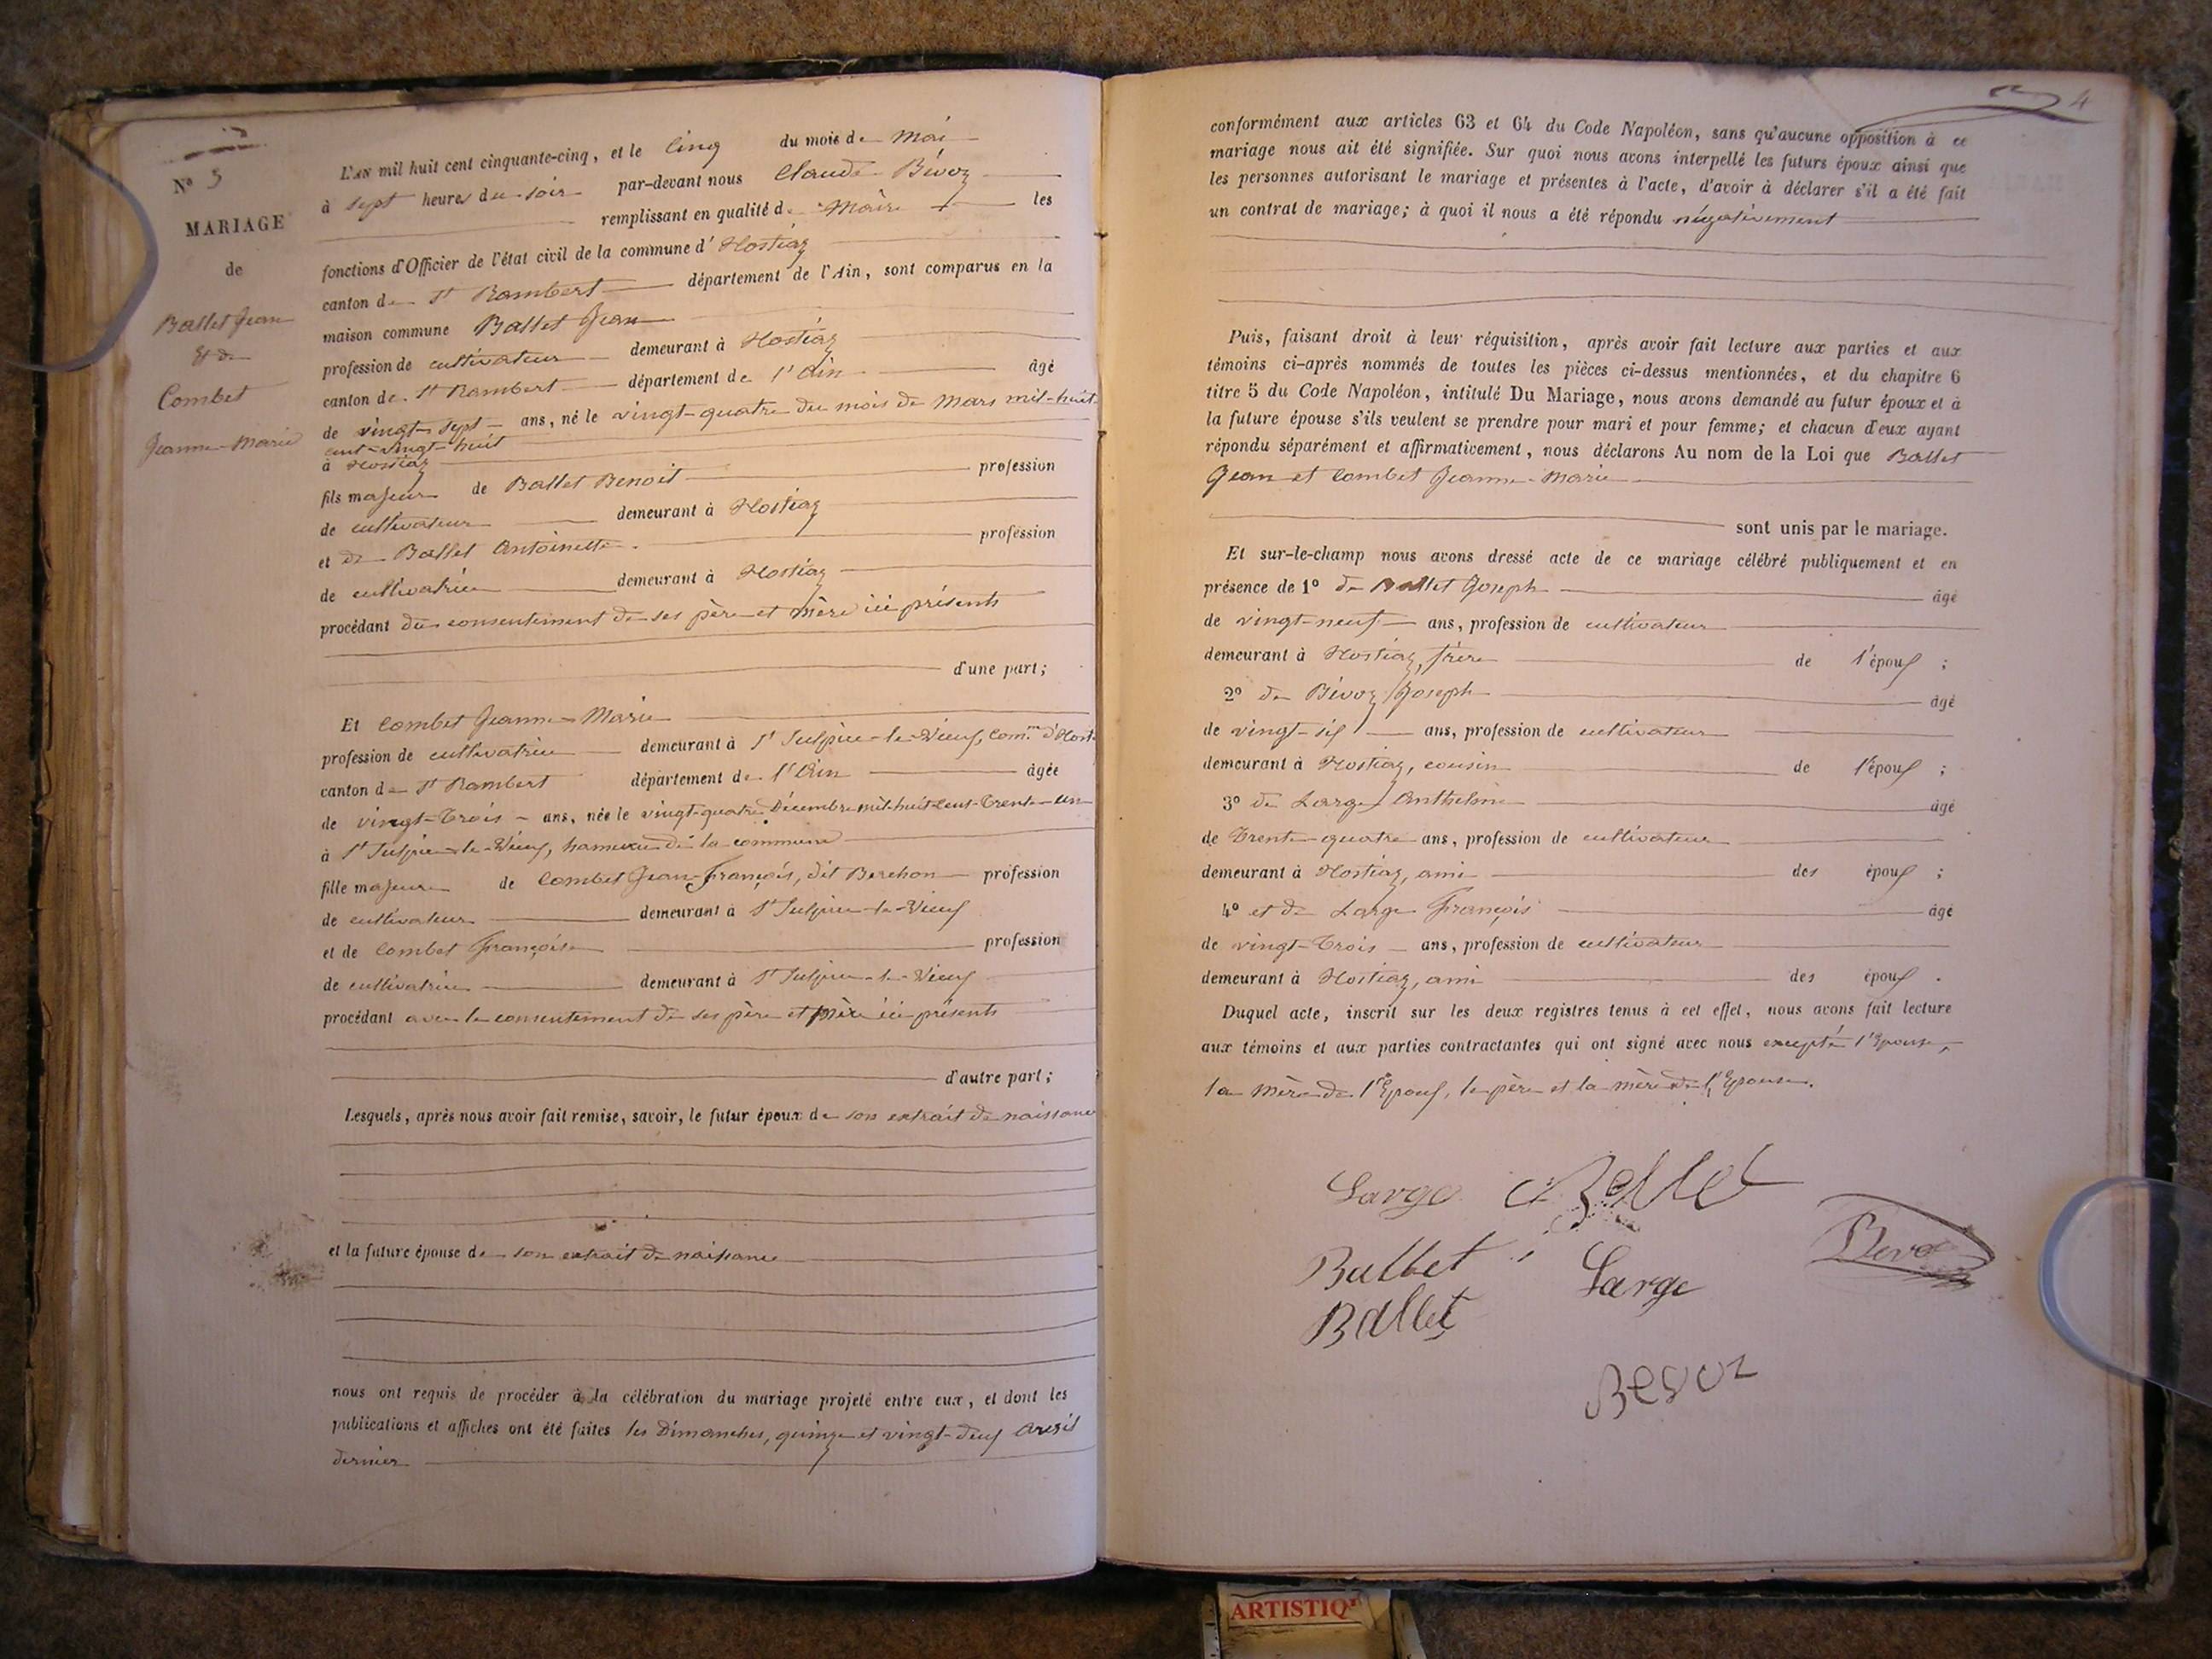 N° 5
MARIAGE
de
Ballet Jean
Et de
Combet
Jeanne-Marie
L'AN mil huit cent cinquante-cinq, et le cinq du mois de Mai
à sept heures du soir par-devant nous Claude Bévoz
remplissant en qualité de Maire les
fonctions d'Officier de l'état civil de la commune d'Hostiaz
canton de St Rambert département de l'Ain, sont comparus en la
maison commune Ballet Jean
profession de cultivateur demeurant à Hostiaz
canton de St Rambert département de l'Ain âgé
de vingt-sept ans, né le vingt-quatre du mois de Mars mil-huit-
cent-vingt-huit
à Hostiaz
fils majeur de Ballet Benoit profession
de cultivateur demeurant à Hostiaz
et de Ballet Antoinette profession
de cultivatrice demeurant à Hostiaz
procédant du consentement de ses père et mère ici présents
d'une part;
Et Combet Jeanne-Marie
profession de cultivatrice demeurant à St Sulpice-le-Vieux, com.ne d'Host.
canton de St Rambert département de l'Ain âgée
de vingt-trois ans, née le vingt-quatre Décembre mil-huit-cent-trente-un
à St Sulpice-le-Vieux, hameau de la commune
fille majeure de Combet Jean-François, dit Berchon profession
de cultivateur demeurant à St Sulpice-le-Vieux
et de Combet Françoise profession
de cultivatrice demeurant à St Sulpice-le-Vieux
procédant avec le consentement de ses père et mère ici présents
d'autre part;
Lesquels, après nous avoir fait remise, savoir, le futur époux de son extrait de naissance
et la future épouse de son extrait de naissance
nous ont requis de procéder à la célébration du mariage projeté entre eux, et dont les
publications et affiches ont été faites les Dimanches, quinze et vingt-deux avril
dernier
4
conformément aux articles 63 et 64 du Code Napoléon, sans qu'aucune opposition à ce
mariage nous ait été signifiée. Sur quoi nous avons interpellé les futurs époux ainsi que
les personnes autorisant le mariage et présentes à l'acte, d'avoir à déclarer s'il a été fait
un contrat de mariage; à quoi il nous a été répondu négativement
Puis, faisant droit à leur réquisition, après avoir fait lecture aux parties et aux
témoins ci-après nommés de toutes les pièces ci-dessus mentionnées, et du chapitre 6
titre 5 du Code Napoléon, intitulé Du Mariage, nous avons demandé au futur époux et à
la future épouse s'ils veulent se prendre pour mari et pour femme; et chacun d'eux ayant
répondu séparément et affirmativement, nous déclarons Au nom de la Loi que Ballet
Jean et Combet Jeanne-Marie
sont unis par le mariage.
Et sur-le-champ nous avons dressé acte de ce mariage célébré publiquement et en
présence de 1° de Ballet Joseph âgé
de vingt-neuf ans, profession de cultivateur
demeurant à Hostiaz, frère de l'époux ;
2° de Bévoz Joseph âgé
de vingt-six ans, profession de cultivateur
demeurant à Hostiaz, cousin de l'époux ;
3° de Large Anthelme âgé
de Trente-quatre ans, profession de cultivateur
demeurant à Hostiaz, ami des époux ;
4° et de Large François âgé
de vingt-trois ans, profession de cultivateur
demeurant à Hostiaz, ami des époux .
Duquel acte, inscrit sur les deux registres tenus à cet effet, nous avons fait lecture
aux témoins et aux parties contractantes qui ont signé avec nous excepté l'Epouse,
la mère de l'Epoux, le père et la mère de l'Epouse.
Large Ballet
Ballet Large
Ballet
Bevoz
ARTISTIQ